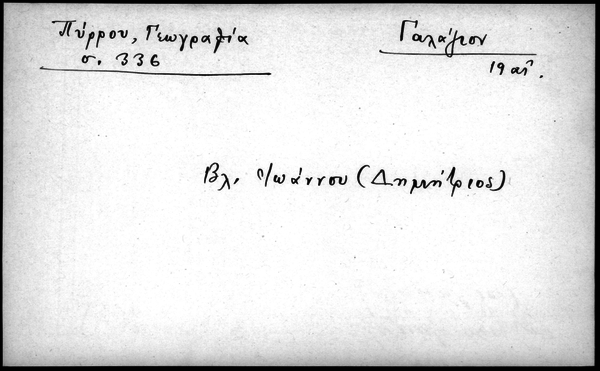 Πύρρου, Γεωγραφία
σ. 336
Γαλάζιον
19 αἰ.
Βλ. Ἰωάννου (Δημήτριος)